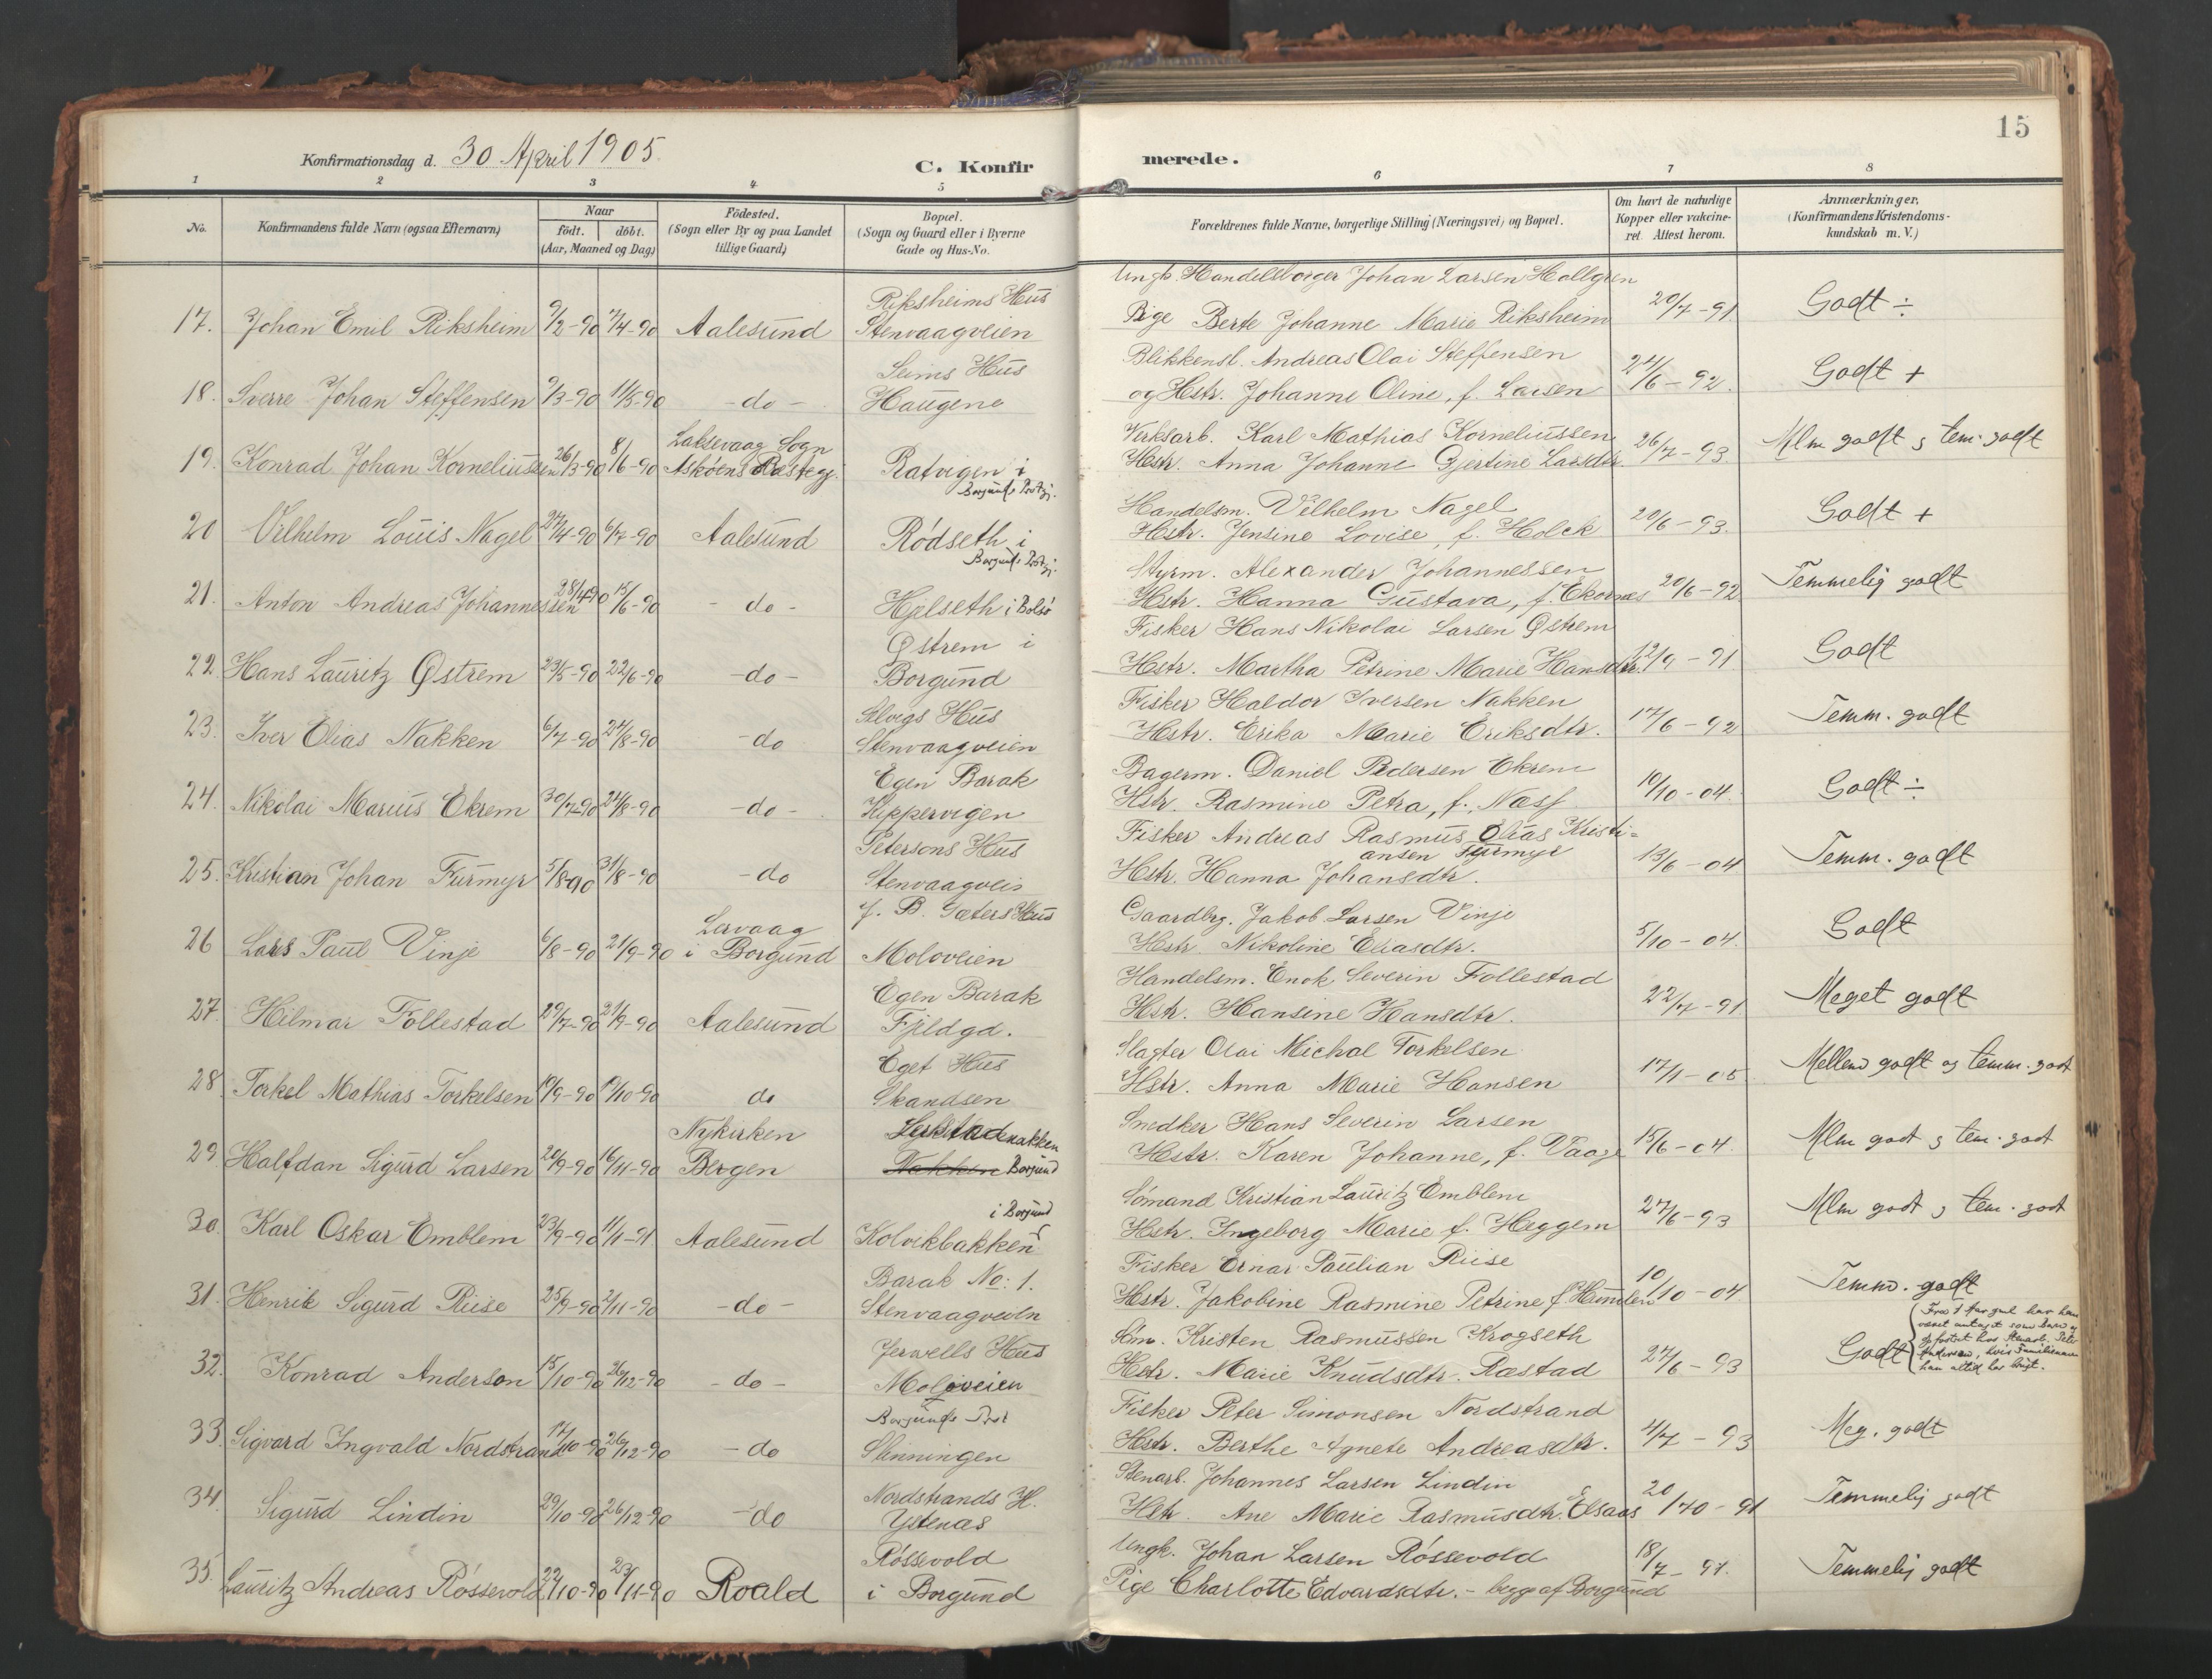 15
Konfirmationsdag d. 30 April 1905.
C. Konfir
merede.
1 2 3 4 5 6 7 8
No.
Konfirmandens fulde Navn (ogsaa Efternavn)
Naar
født. døbt.
(Aar, Maaned og Dag)
Födested.
(Sogn eller By og paa Landet
tillige Gaard)
Bopæl.
(Sogn og Gaard eller i Byerne
Gade og Hus-No.
Forældrenes fulde Navne, borgerlige Stilling (Næringsvei) og Bopæl.
Om havt de naturlige
Kopper eller vakcine-
ret. Attest herom.
Anmærkninger.
(Konfirmandens Kristendoms-
kundskab m. V.)
Ungk. Handelsborger Johan Larsen Hallgren
Riksheims Hus
17. Johan Emil Riksheim 9/2-90 7/4-90 Aalesund Stenvaagveien Pige Berte Johanne Marie Riksheim 20/7-91 Godt ÷
Seims Hus Blikkensl. Andreas Olai Steffensen
18. Sverre Johan Steffensen 9/3-90 11/5-90 -do- Haugene og Hstr. Johanne Oline, f. Larsen 24/6-92. Godt +
Laksevaag Sogn Virksarb. Karl Mathias Korneliussen
19. Konrad Johan Korneliussen 26/3-90 8/6-90 Askøens Præstegj. Ratvigen i Hstr. Anna Johanne Gjertine Larsdtr. 26/7-93. Mlm godt og tem. godt
Borgunds Prstgj.
Handelsm. Vilhelm Nagel
20 Vilhelm Louis Nagel 27/4-90 6/7-90 Aalesund Rødseth i Hstr. Jensine Lovise, f. Holck 20/6-93. Godt +
Borgunds Prstgj.
Styrm. Alexander Johannessen
21. Anton Andreas Johannessen 28/4-90 15/6-90 -do- Hjelseth i Bolsø Hstr. Hanna Gustava, f. Ekornes 20/6-92 Temmelig godt
Østrem i Fisker Hans Nikolai Larsen Østrem
22. Hans Lauritz Østrem 23/5-90 22/6-90 -do- Borgund Hstr. Martha Petrine Marie Hansdtr. 12/9-91 Godt
Alvigs Hus Fisker Haldor Iversen Nakken
23. Iver Elias Nakken 6/7-90 24/8-90 -do Stenvaagveien Hstr. Erika Marie Eriksdtr. 17/6-92 Temm. godt
Egen Barak Bagerm. Daniel Pedersen Ekrem
24. Nikolai Marius Ekrem 30/7-90 24/8-90 -do- Kippervigen Hstr. Rasmine Petra, f. Næss 10/10-04. Godt ÷
Petersons Hus Fisker Andreas Rasmus Elias Kristi=
ansen Furmyr
25. Kristian Johan Furmyr 5/8-90 31/8-90 -do Stenvaagvei Hstr. Hanna Johansdtr. 13/6-04 Temm. godt
Lervaag J. B. Sæters Hus Gaardbrg. Jakob Larsen Vinje
26 Lars Paul Vinje 6/8-90 21/9-90 i Borgund Moloveien Hstr. Nikoline Eliasdtr. 5/10-04. Godt
Egen Barak Handelsm. Enok Severin Follestad
27. Hilmar Follestad 29/7-90 21/9-90 Aalesund Fjeldgd. Hstr. Hansine Hansdtr. 22/7-91 Meget godt
Eget Hus Slagter Olai Michal Torkelsen
28 Torkel Mathias Torkelsen 10/9-90 12/10-90 do Skandsen Hstr. Anna Marie Hansen 17/1-05 Mellem godt og temm. godt
Nykirken Lerstadnakken Snedker Hans Severin Larsen
29. Halfdan Sigurd Larsen 20/9-90 16/11-90 Bergen Nakken Borgund Hstr. Karen Johanne, f. Vaage 15/6-04. Mlm godt og tem. godt
i Borgund Sømand Kristian Lauritz Emblem
30. Karl Oskar Emblem 23/9-90 11/1-91 Aalesund Kolvikbakken Hstr. Ingeborg Marie f. Heggem 27/6-93 Mlm godt og tem. godt
Barak No: 1. Fisker Einar Paulian Riise
31. Henrik Sigurd Riise 25/9-90 2/11-90 -do- Stenvaagveien Hstr. Jakobine Rasmine Petrine f. Humlen 10/10-04. Temm. godt
Jerwells Hus Søm. Kristen Rasmussen Krogseth
32. Konrad Anderson 15/10-90 26/12-90 -do- Moloveien Hstr. Marie Knudsdtr. Ræstad 27/6-93 Godt
Fra 1 Aar gml har han
været antaget som Barn og
opfostret hos Stenarb. Peter
Anderson, hvis Familienavn
han altid har brugt.
Borgunds Prst Fisker Peter Simonsen Nordstrand
33. Sigvard Ingvald Nordstrand 17/10-90 26/12-90 -do Slinningen Hstr. Berthe Agnete Andreasdtr. 4/7-93 Meg. godt
Nordstrands H. Stenarb. Johannes Larsen Lindin
34. Sigurd Lindin 29/10-90 26/12-90 -do Ystenæs Hstr. Ane Marie Rasmusdtr. Elsaas 20/10-91 Temmelig godt
Røssevold Ungk. Johan Larsen Røssevold
35. Lauritz Andreas Røssevold 22/10-90 23/11-90 Roald i Borgund Pige Charlotte Edvardsdtr. - begge af Borgund 18/7-91. Temmelig godt